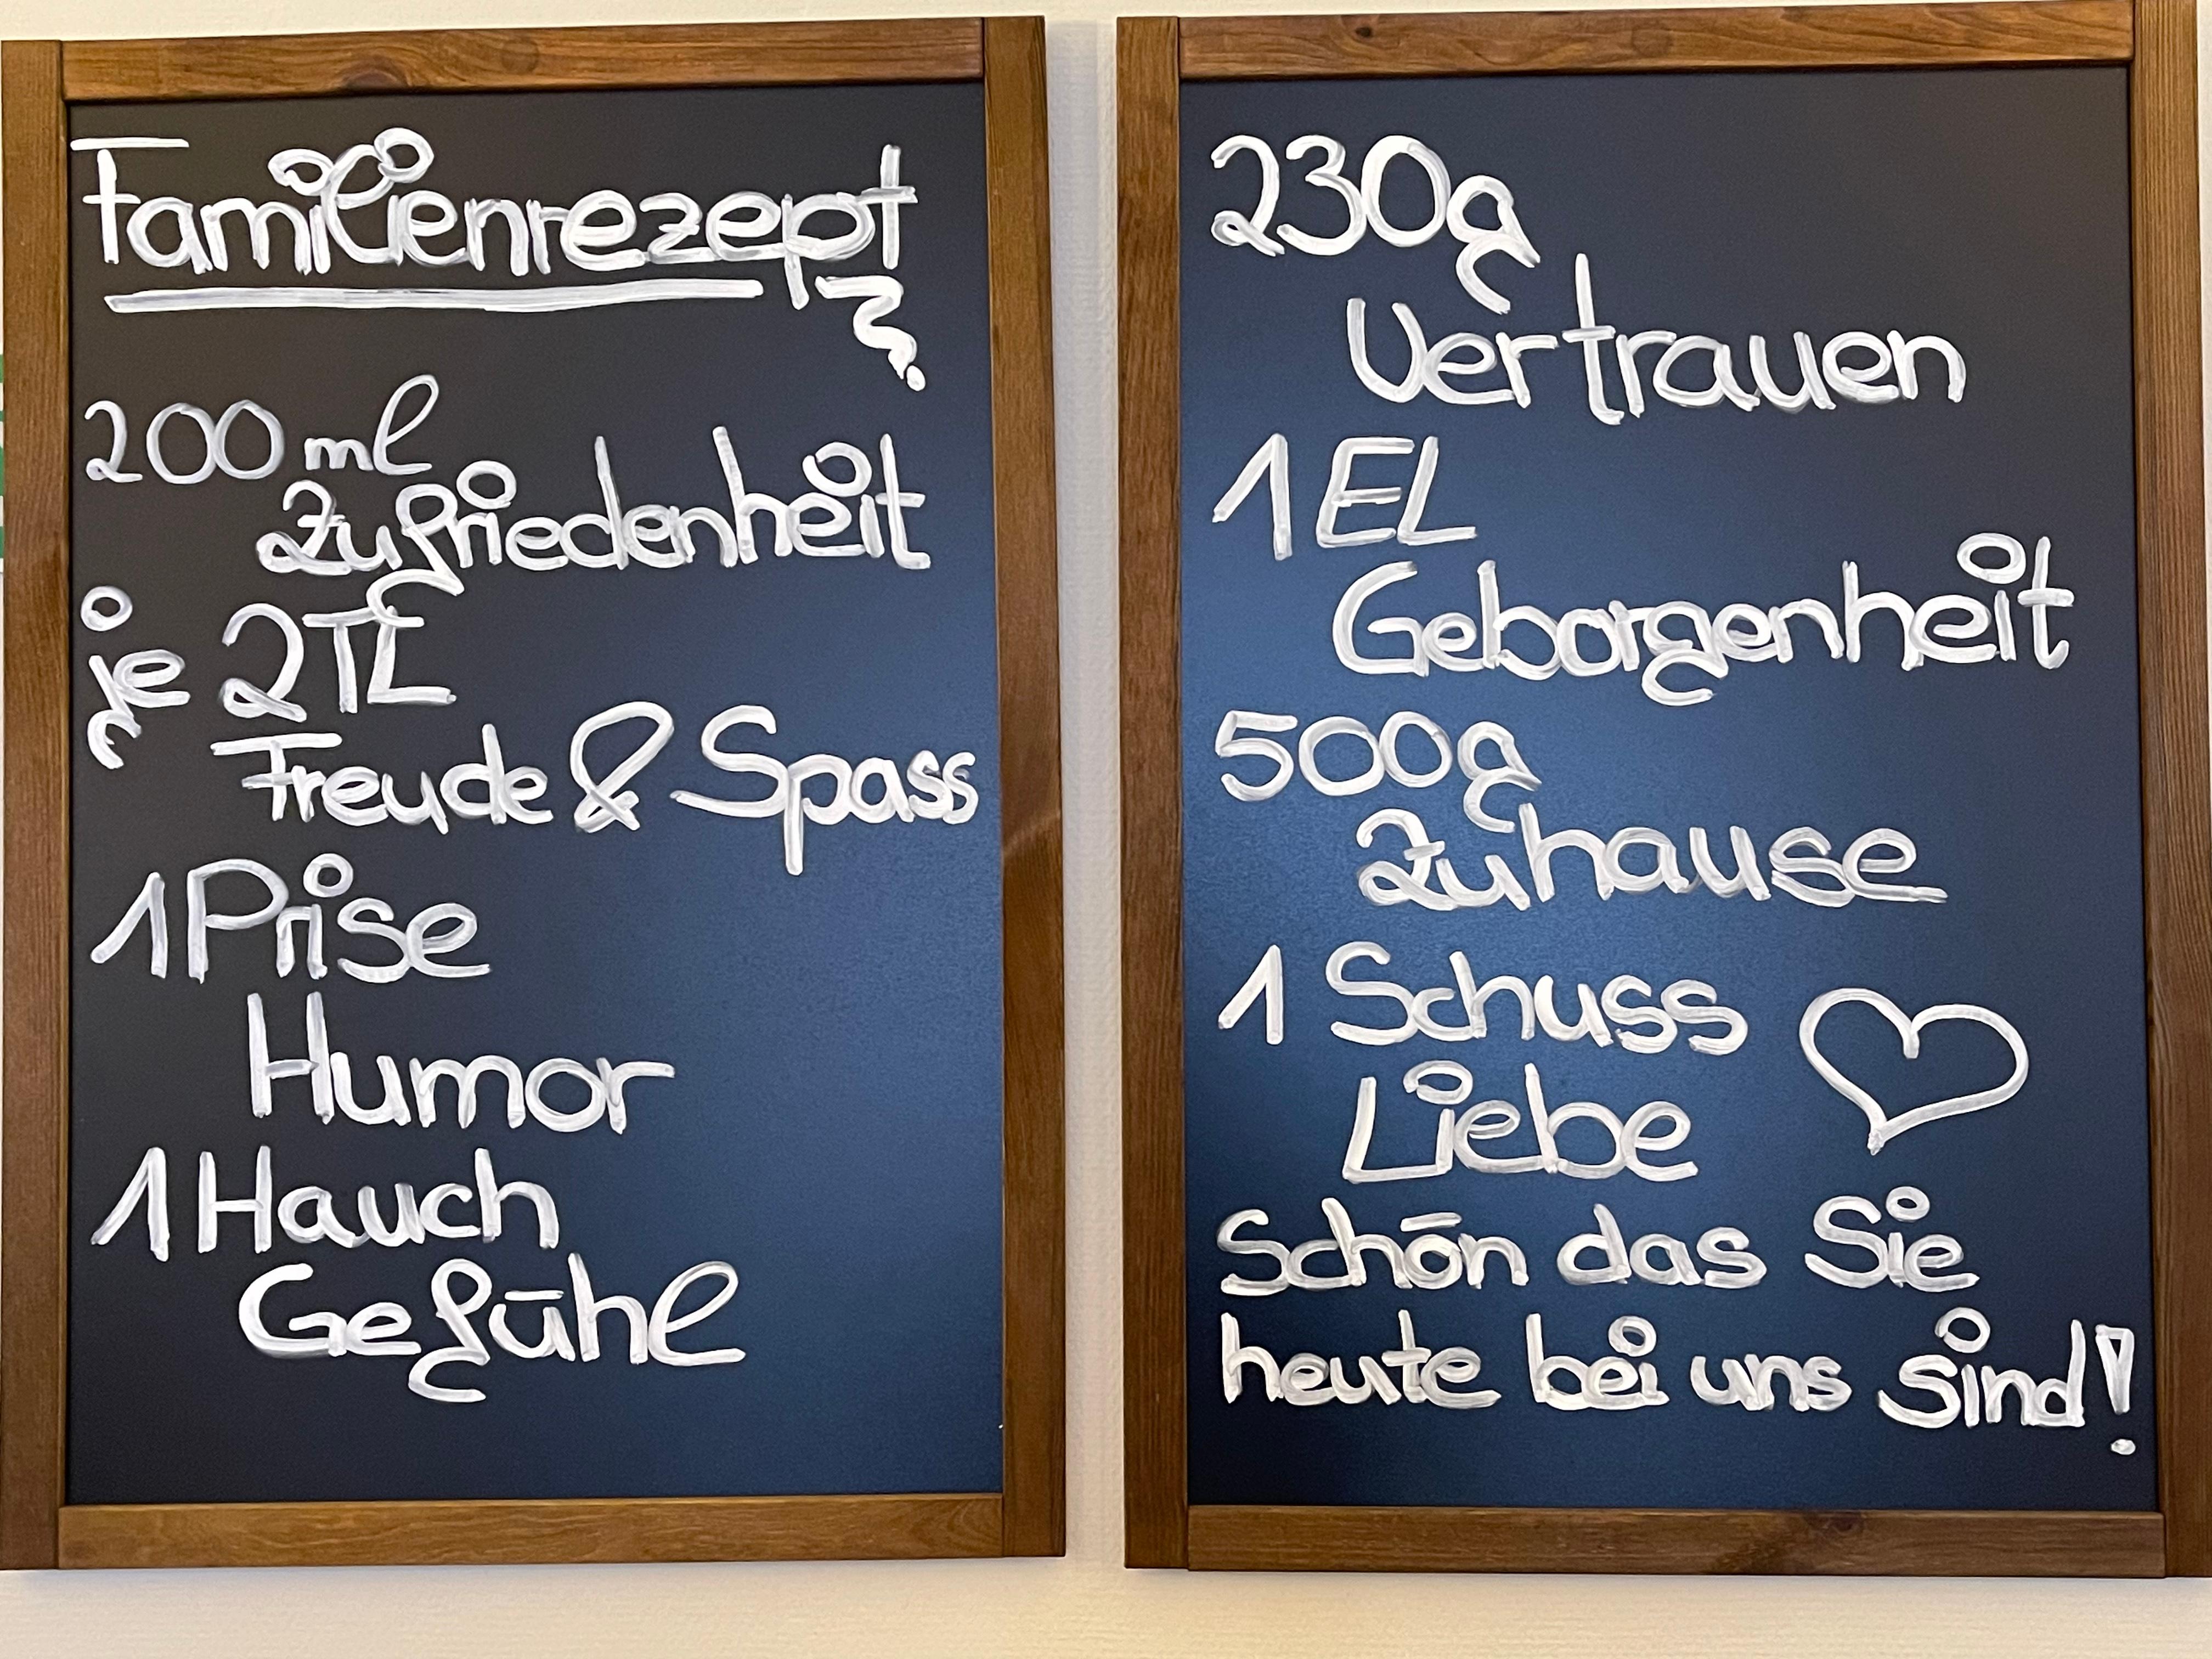 Familienrezept
200 ml
Zufriedenheit
je 2TL
Freude & Spass
1 Prise
Humor
1 Hauch
Gefühl
230g
Vertrauen
1 EL
Geborgenheit
500g
Zuhause
1 Schuss
Liebe
Schön das Sie
heute bei uns sind!